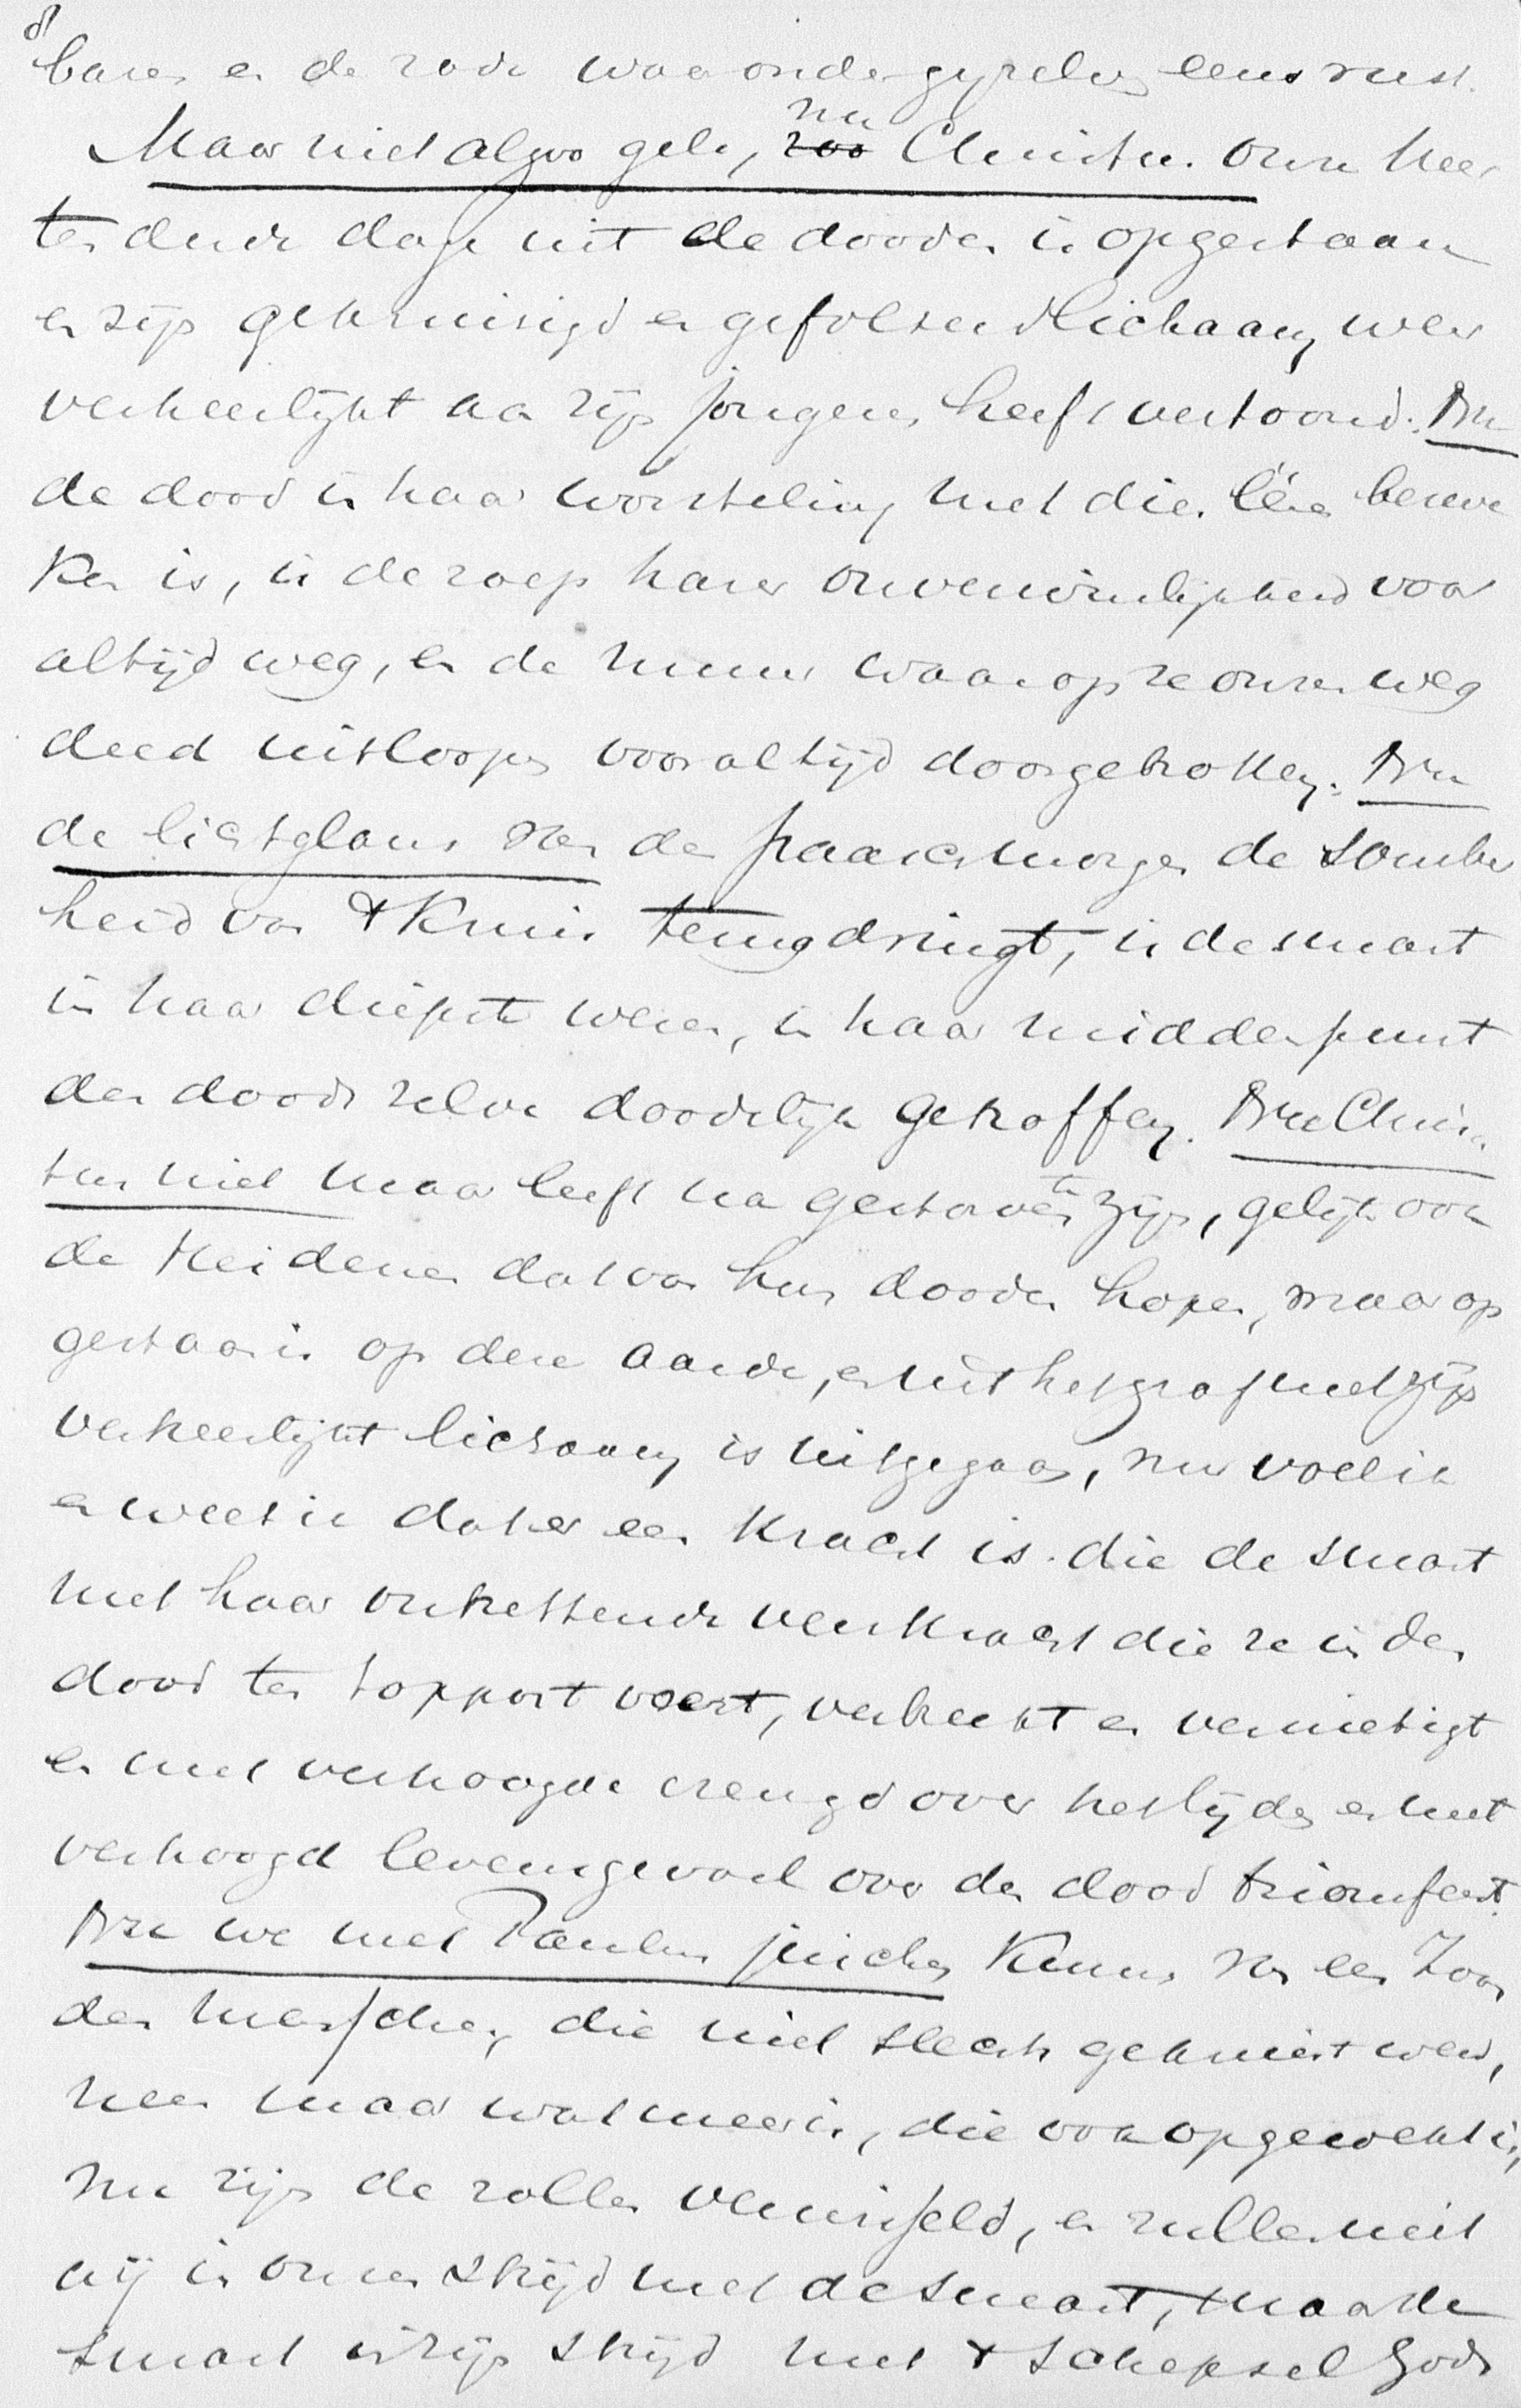 8
baren en de zode waaronder gij zelve eens rust.
Maar niet alzoo gelv, nu Christus onze Heer
ten derde dage uit de dooden is opgestaan
en zijn gekruisigd en gefolterd lichaam weer
verheerlijkt aan zijn jongeren heeft vertoond. Nu
de dood in haar worsteling met dien Eéne bezwe
ken is, is de roep harer onverwinlijkheid voor
altijd weg, en de muur waarop ze onzen weg
deed uitloopen voor altijd doorgebroken. Nu
de lichtglans van den paaschmorgen de somber
heid van 't Kruis terugdringt, is de smart
in haar diepste wezen, in haar middenpunt
den dood zelve doodelijk getroffen. Nu Chris
tus niet maar leeft na gestorven te zijn, gelijk ook
de Heidenen dat van hun dooden hopen, maar op
gestaan is op deze aarde, en uit het graf met zijn
verheerlijkt lichaam is uitgegaan, nu voel ik
en weet ik dat er een Kracht is die de smart
met haar ontzettende veerkracht die ze in den
dood ten toppunt voert, verbreekt en vernietigt
en met verhoogde vreugd over het lijden en met
verhoogd levensgevoel over den dood triomfeert.
Nu we met Paulus juichen Kunnen van een Zoon
des menschen, die niet slechts gekruist werd,
neen maar wat meer is, die ook opgewekt is,
nu zijn de rollen verwisseld, en zullen niet
wij in onzen strijd met de smart, maar de
smart in zijn strijd met 't schepsel Gods